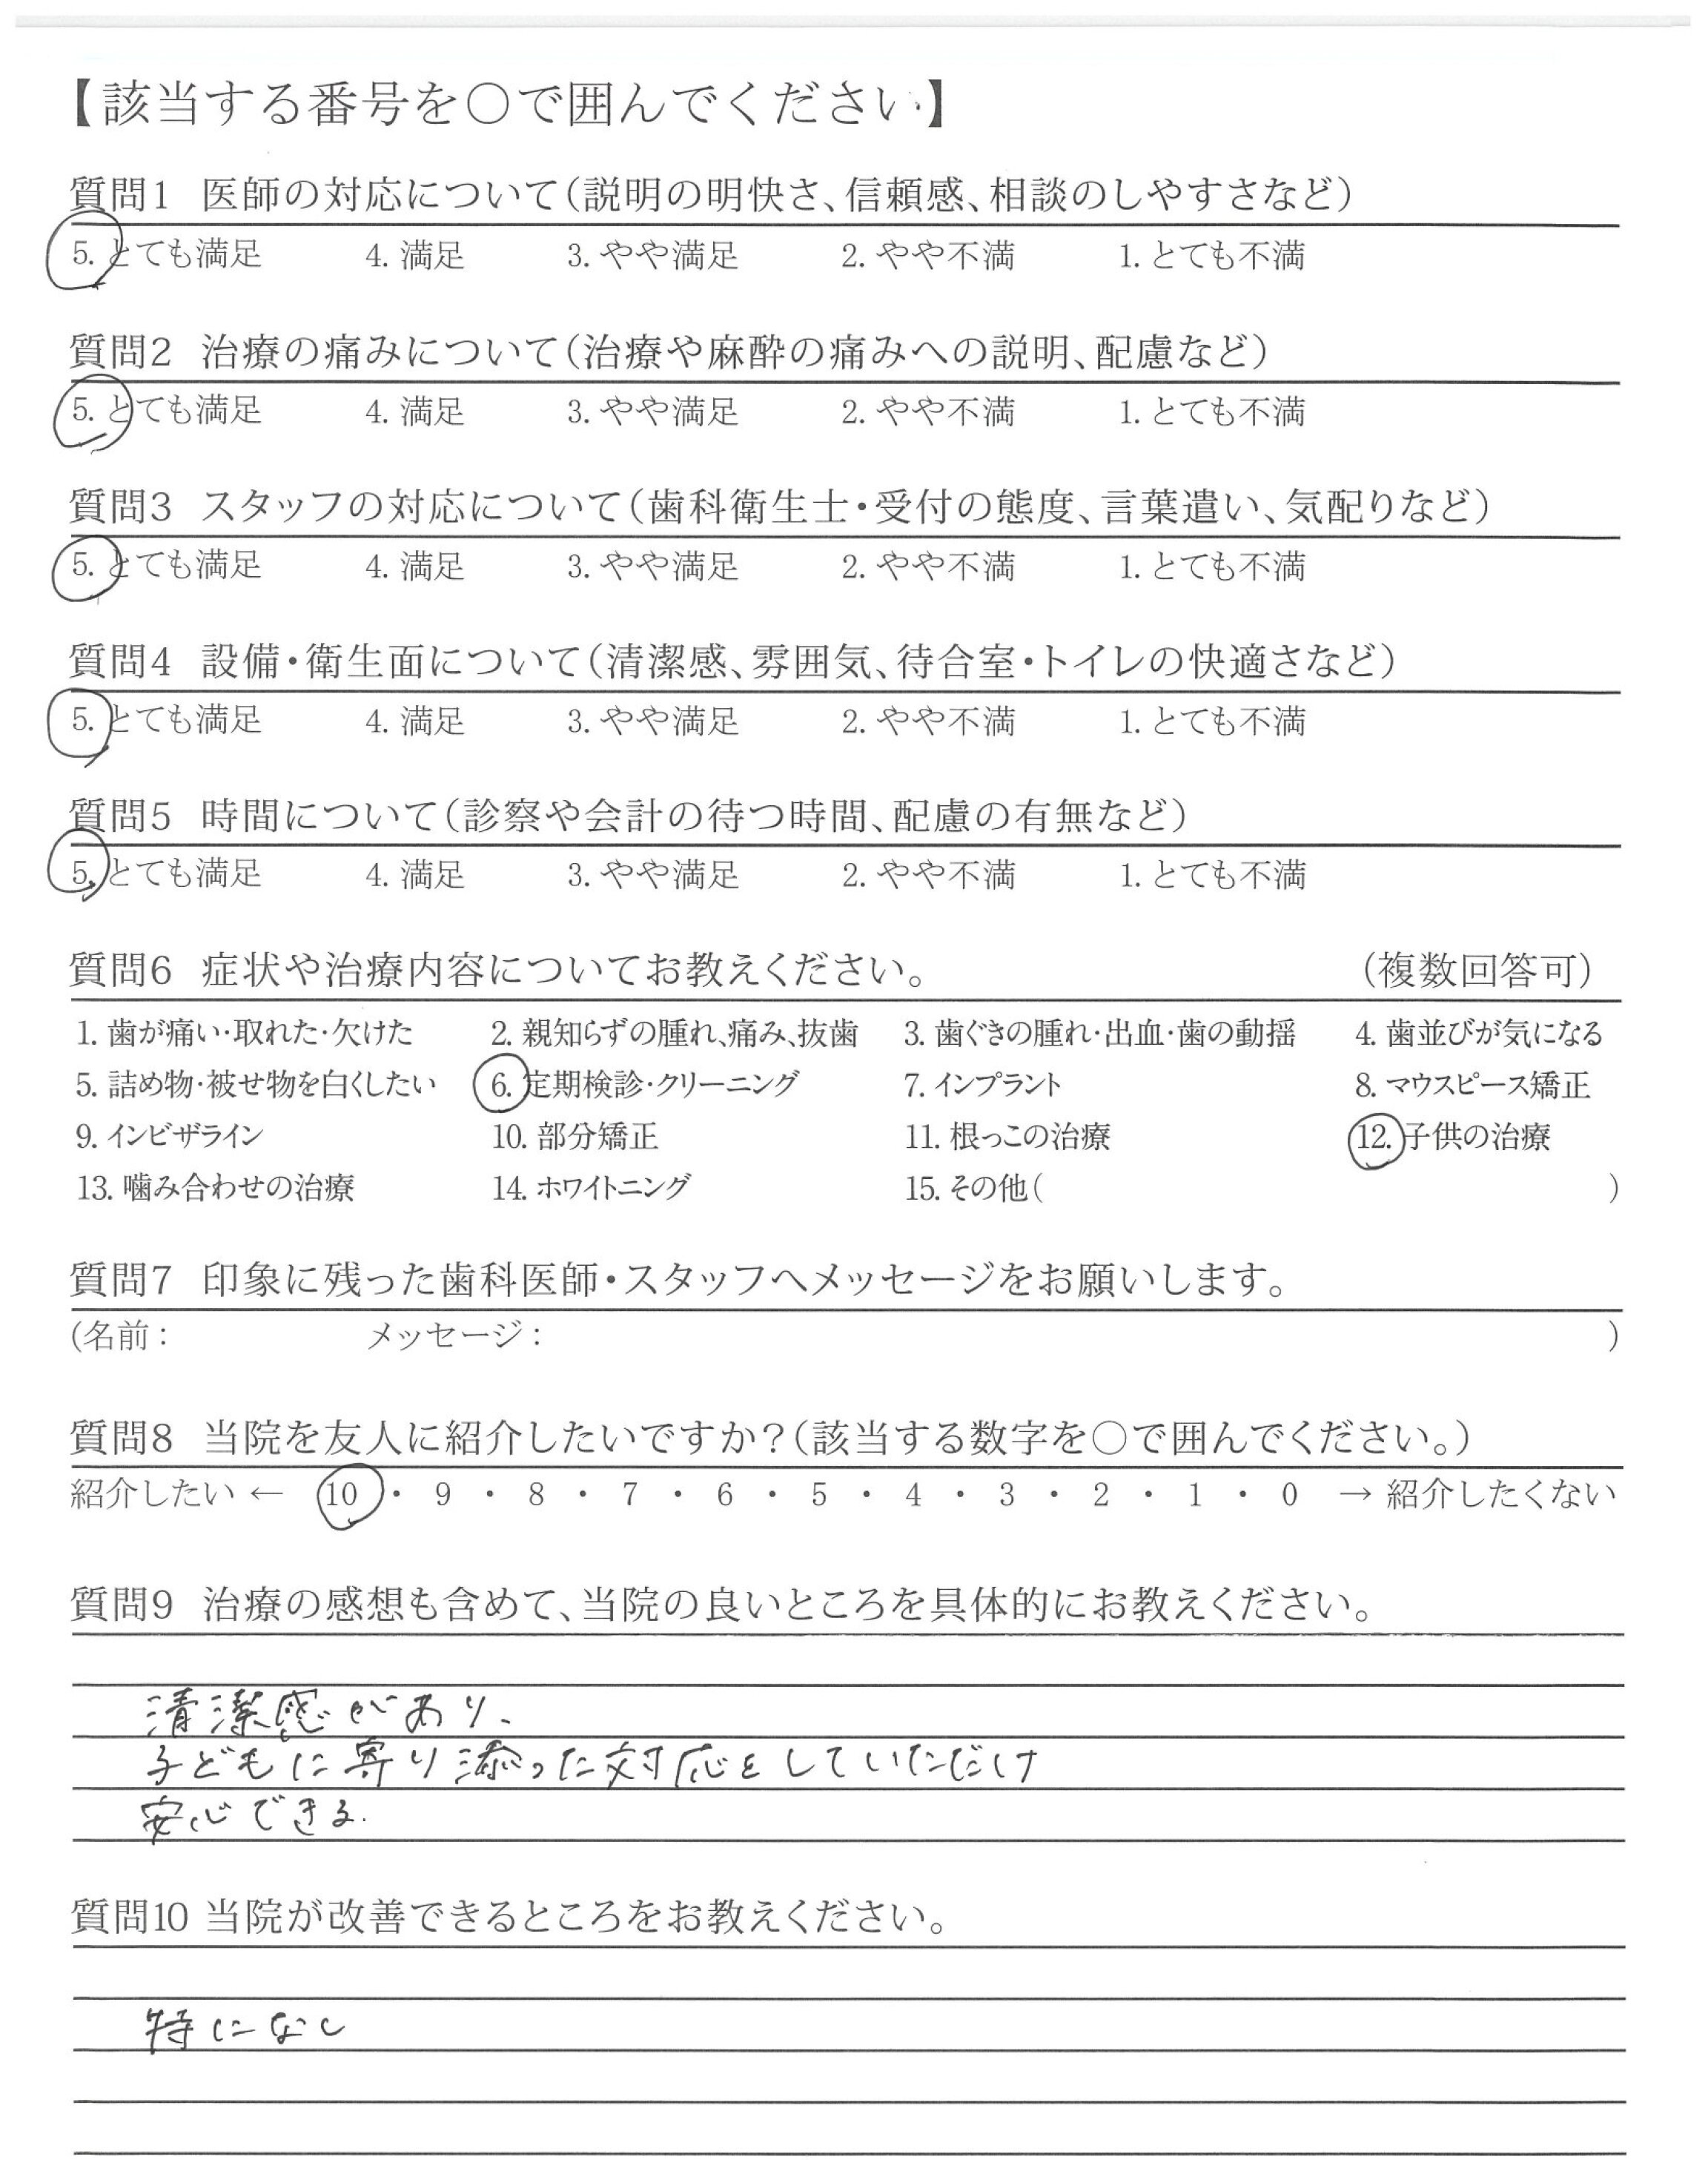 【該当する番号を○で囲んでください】
質問1 医師の対応について(説明の明快さ、信頼感、相談のしやすさなど)
5. とても満足 4. 満足 3. やや満足 2. やや不満 1. とても不満
質問2 治療の痛みについて(治療や麻酔の痛みへの説明、配慮など)
5. とても満足 4. 満足 3. やや満足 2. やや不満 1. とても不満
質問3 スタッフの対応について(歯科衛生士・受付の態度、言葉遣い、気配りなど)
5. とても満足 4. 満足 3. やや満足 2. やや不満 1. とても不満
質問4 設備・衛生面について(清潔感、雰囲気、待合室・トイレの快適さなど)
5. とても満足 4. 満足 3. やや満足 2. やや不満 1. とても不満
質問5 時間について(診察や会計の待つ時間、配慮の有無など)
5. とても満足 4. 満足 3. やや満足 2. やや不満 1. とても不満
質問6 症状や治療内容についてお教えください。 (複数回答可)
1. 歯が痛い・取れた・欠けた 2. 親知らずの腫れ、痛み、抜歯 3. 歯ぐきの腫れ・出血・歯の動揺 4. 歯並びが気になる
5. 詰め物・被せ物を白くしたい 6. 定期検診・クリーニング 7. インプラント 8. マウスピース矯正
9. インビザライン 10. 部分矯正 11. 根っこの治療 12. 子供の治療
13. 噛み合わせの治療 14. ホワイトニング 15. その他( )
質問7 印象に残った歯科医師・スタッフへメッセージをお願いします。
(名前: メッセージ: )
質問8 当院を友人に紹介したいですか?(該当する数字を○で囲んでください。)
紹介したい ← 10 ・ 9 ・ 8 ・ 7 ・ 6 ・ 5 ・ 4 ・ 3 ・ 2 ・ 1 ・ 0 → 紹介したくない
質問9 治療の感想も含めて、当院の良いところを具体的にお教えください。
清潔感があり、
子どもに寄り添った対応をしていただけ
安心できる.
質問10 当院が改善できるところをお教えください。
特になし